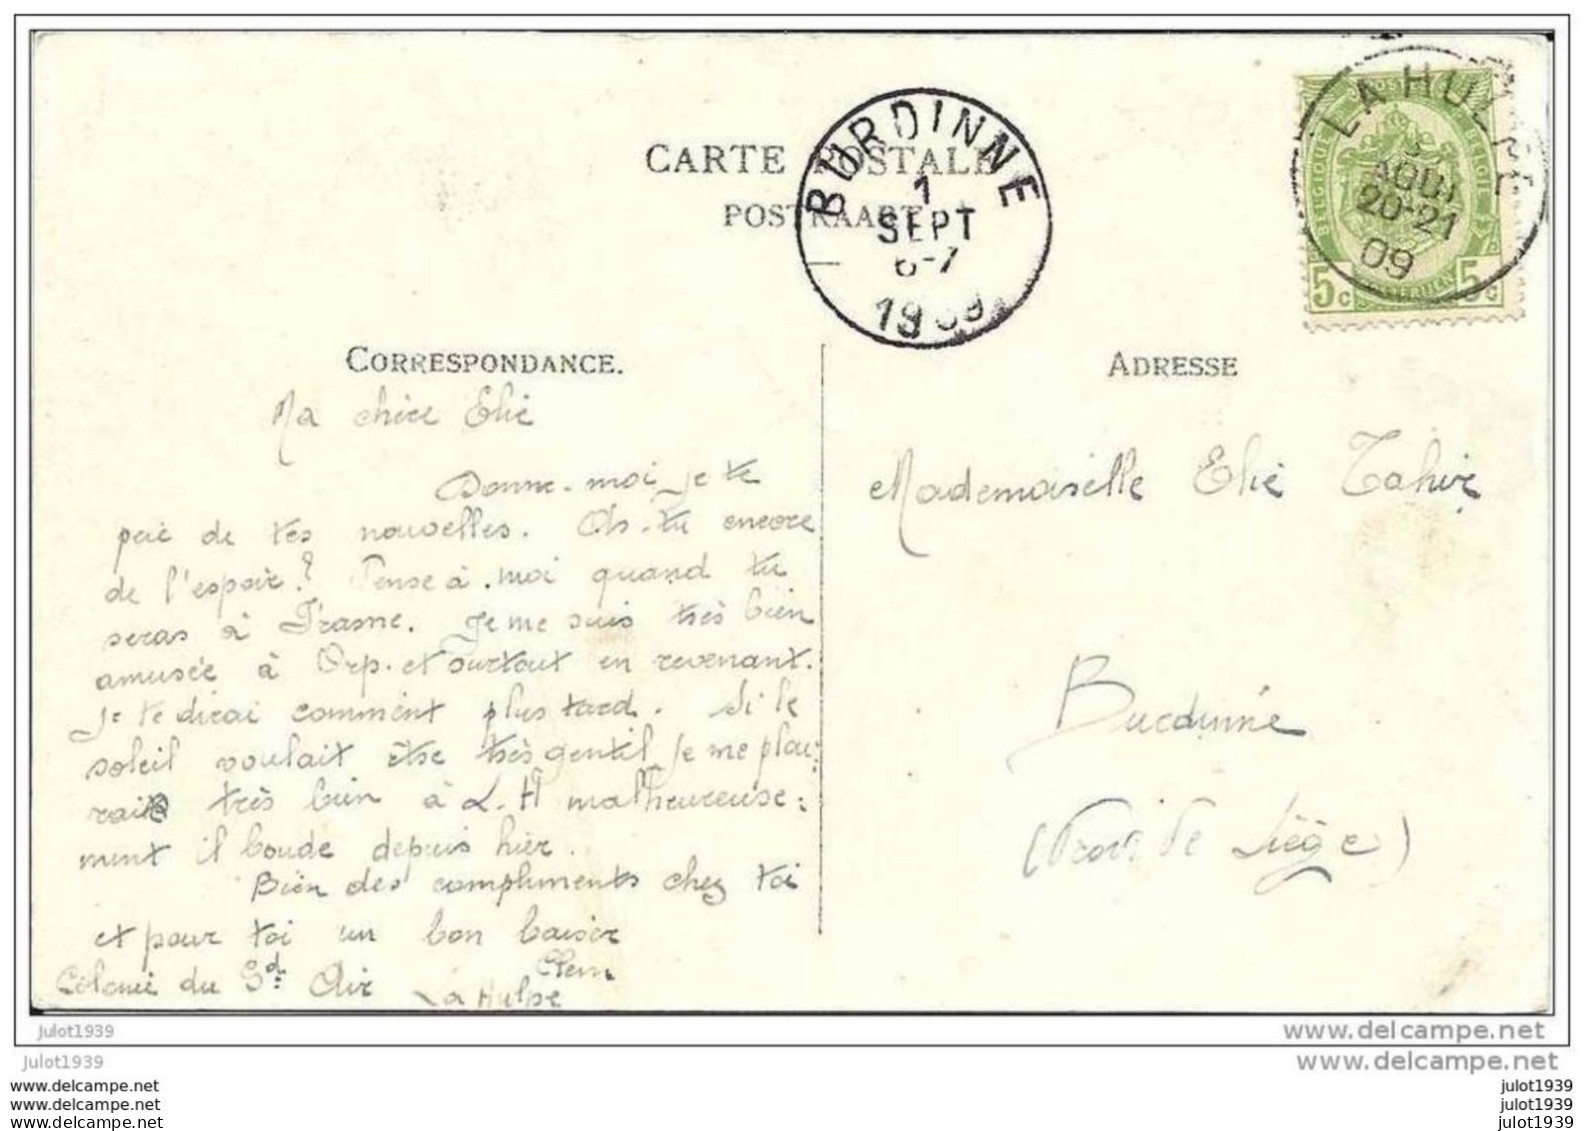 CARTE POSTALE
POSTKAART
BURDINNE
1
SEPT
6-7
1909
LA HULPE
AOUT
20-21
09
BELGIQUE
BELGIE
5c 5c
CORRESPONDANCE.
ADRESSE
Ma chère Elie
Donne-moi, je te
prie de tes nouvelles. As-tu encore
de l'espoir? Pense à moi quand tu
seras à Frasne. Je me suis très bien
amusée à Orp. et surtout en revenant.
Je te dirai comment plus tard. Si le
soleil voulait être très gentil je me plai:
rais très bien à L.H malheureuse:
ment il boude depuis hier.
Bien des compliments chez toi
et pour toi un bon baiser
Clem
Colonie du Gd Air La Hulpe
Mademoiselle Elie Tahir
Burdinne
(Prov. de Liège)
Julot1939
www.delcampe.net
Julot1939
www.delcampe.net
www.delcampe.net
julot1939
www.delcampe.net
julot1939
www.delcampe.net
julot1939